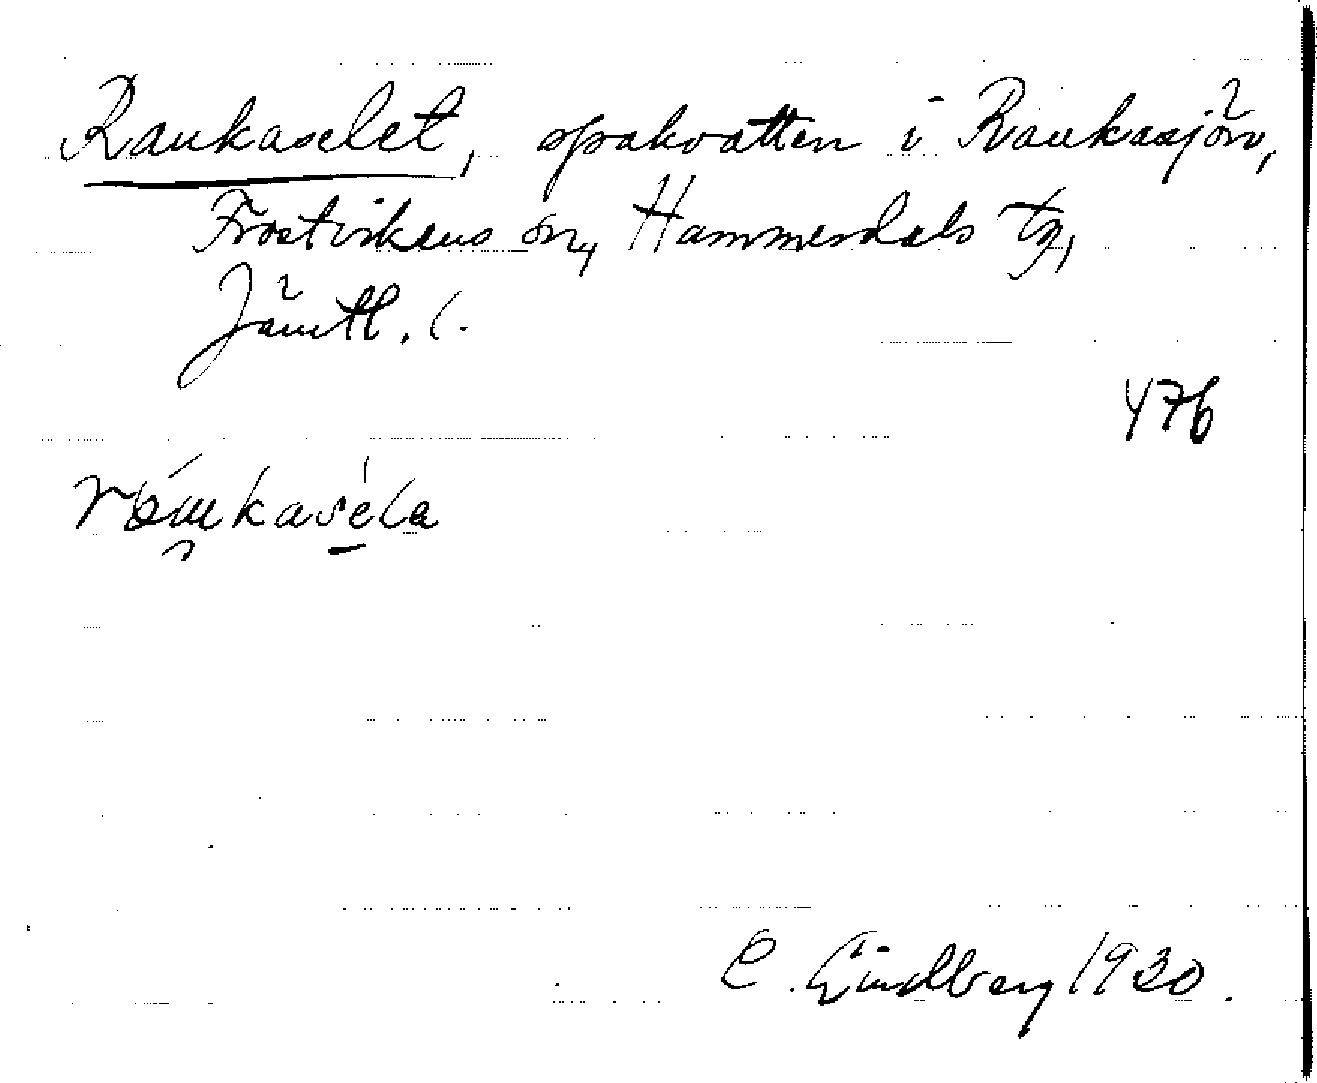 Raukaselet, spakvatten i Raukasjön,
Frostvikens sn, Hammerdals tg,
Jämtl. l.
476
C. Lindberg 1930.